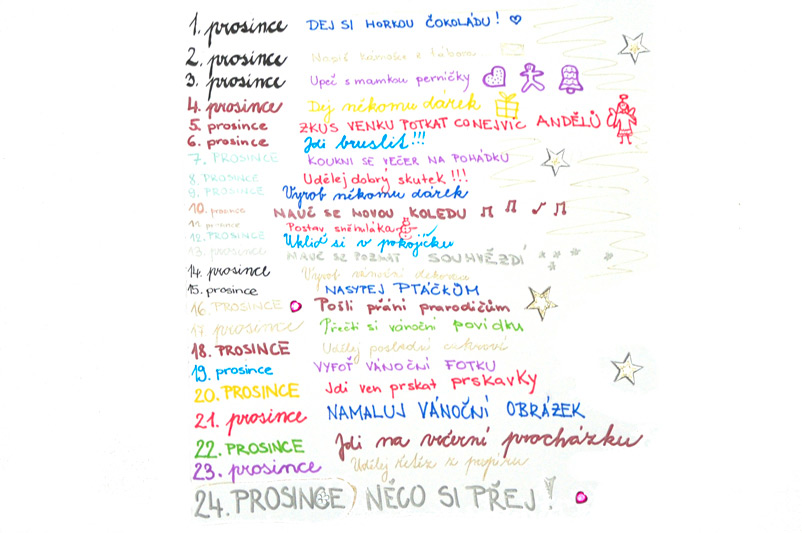 1. prosince DEJ SI HORKOU ČOKOLÁDU!
2. prosince Napiš kámošce z tábora
3. prosince Upeč s mamkou perníčky
4. prosince Dej někomu dárek
5. prosince ZKUS VENKU POTKAT CO NEJVÍC ANDĚLŮ
6. prosince Jdi bruslit!!!
7. PROSINCE KOUKNI SE VEČER NA POHÁDKU
8. PROSINCE Udělej dobrý skutek!!!
9. PROSINCE Vyrob někomu dárek
10. prosince NAUČ SE NOVOU KOLEDU
11. prosince Postav sněhuláka
12. PROSINCE Ukliď si v pokojíčku
13. prosince NAUČ SE POZNAT SOUHVĚZDÍ
14. prosince Vyrob vánoční dekoraci
15. prosince NASYPEJ PTÁČKŮM
16. PROSINCE Pošli přání prarodičům
17. prosince Přečti si vánoční povídku
18. PROSINCE Udělej poslední cukroví
19. prosince VYFOŤ VÁNOČNÍ FOTKU
20. PROSINCE Jdi ven prskat prskavky
21. prosince NAMALUJ VÁNOČNÍ OBRÁZEK
22. PROSINCE Jdi na večerní procházku
23. prosince Udělej řetěz z papíru
24. PROSINCE NĚCO SI PŘEJ!